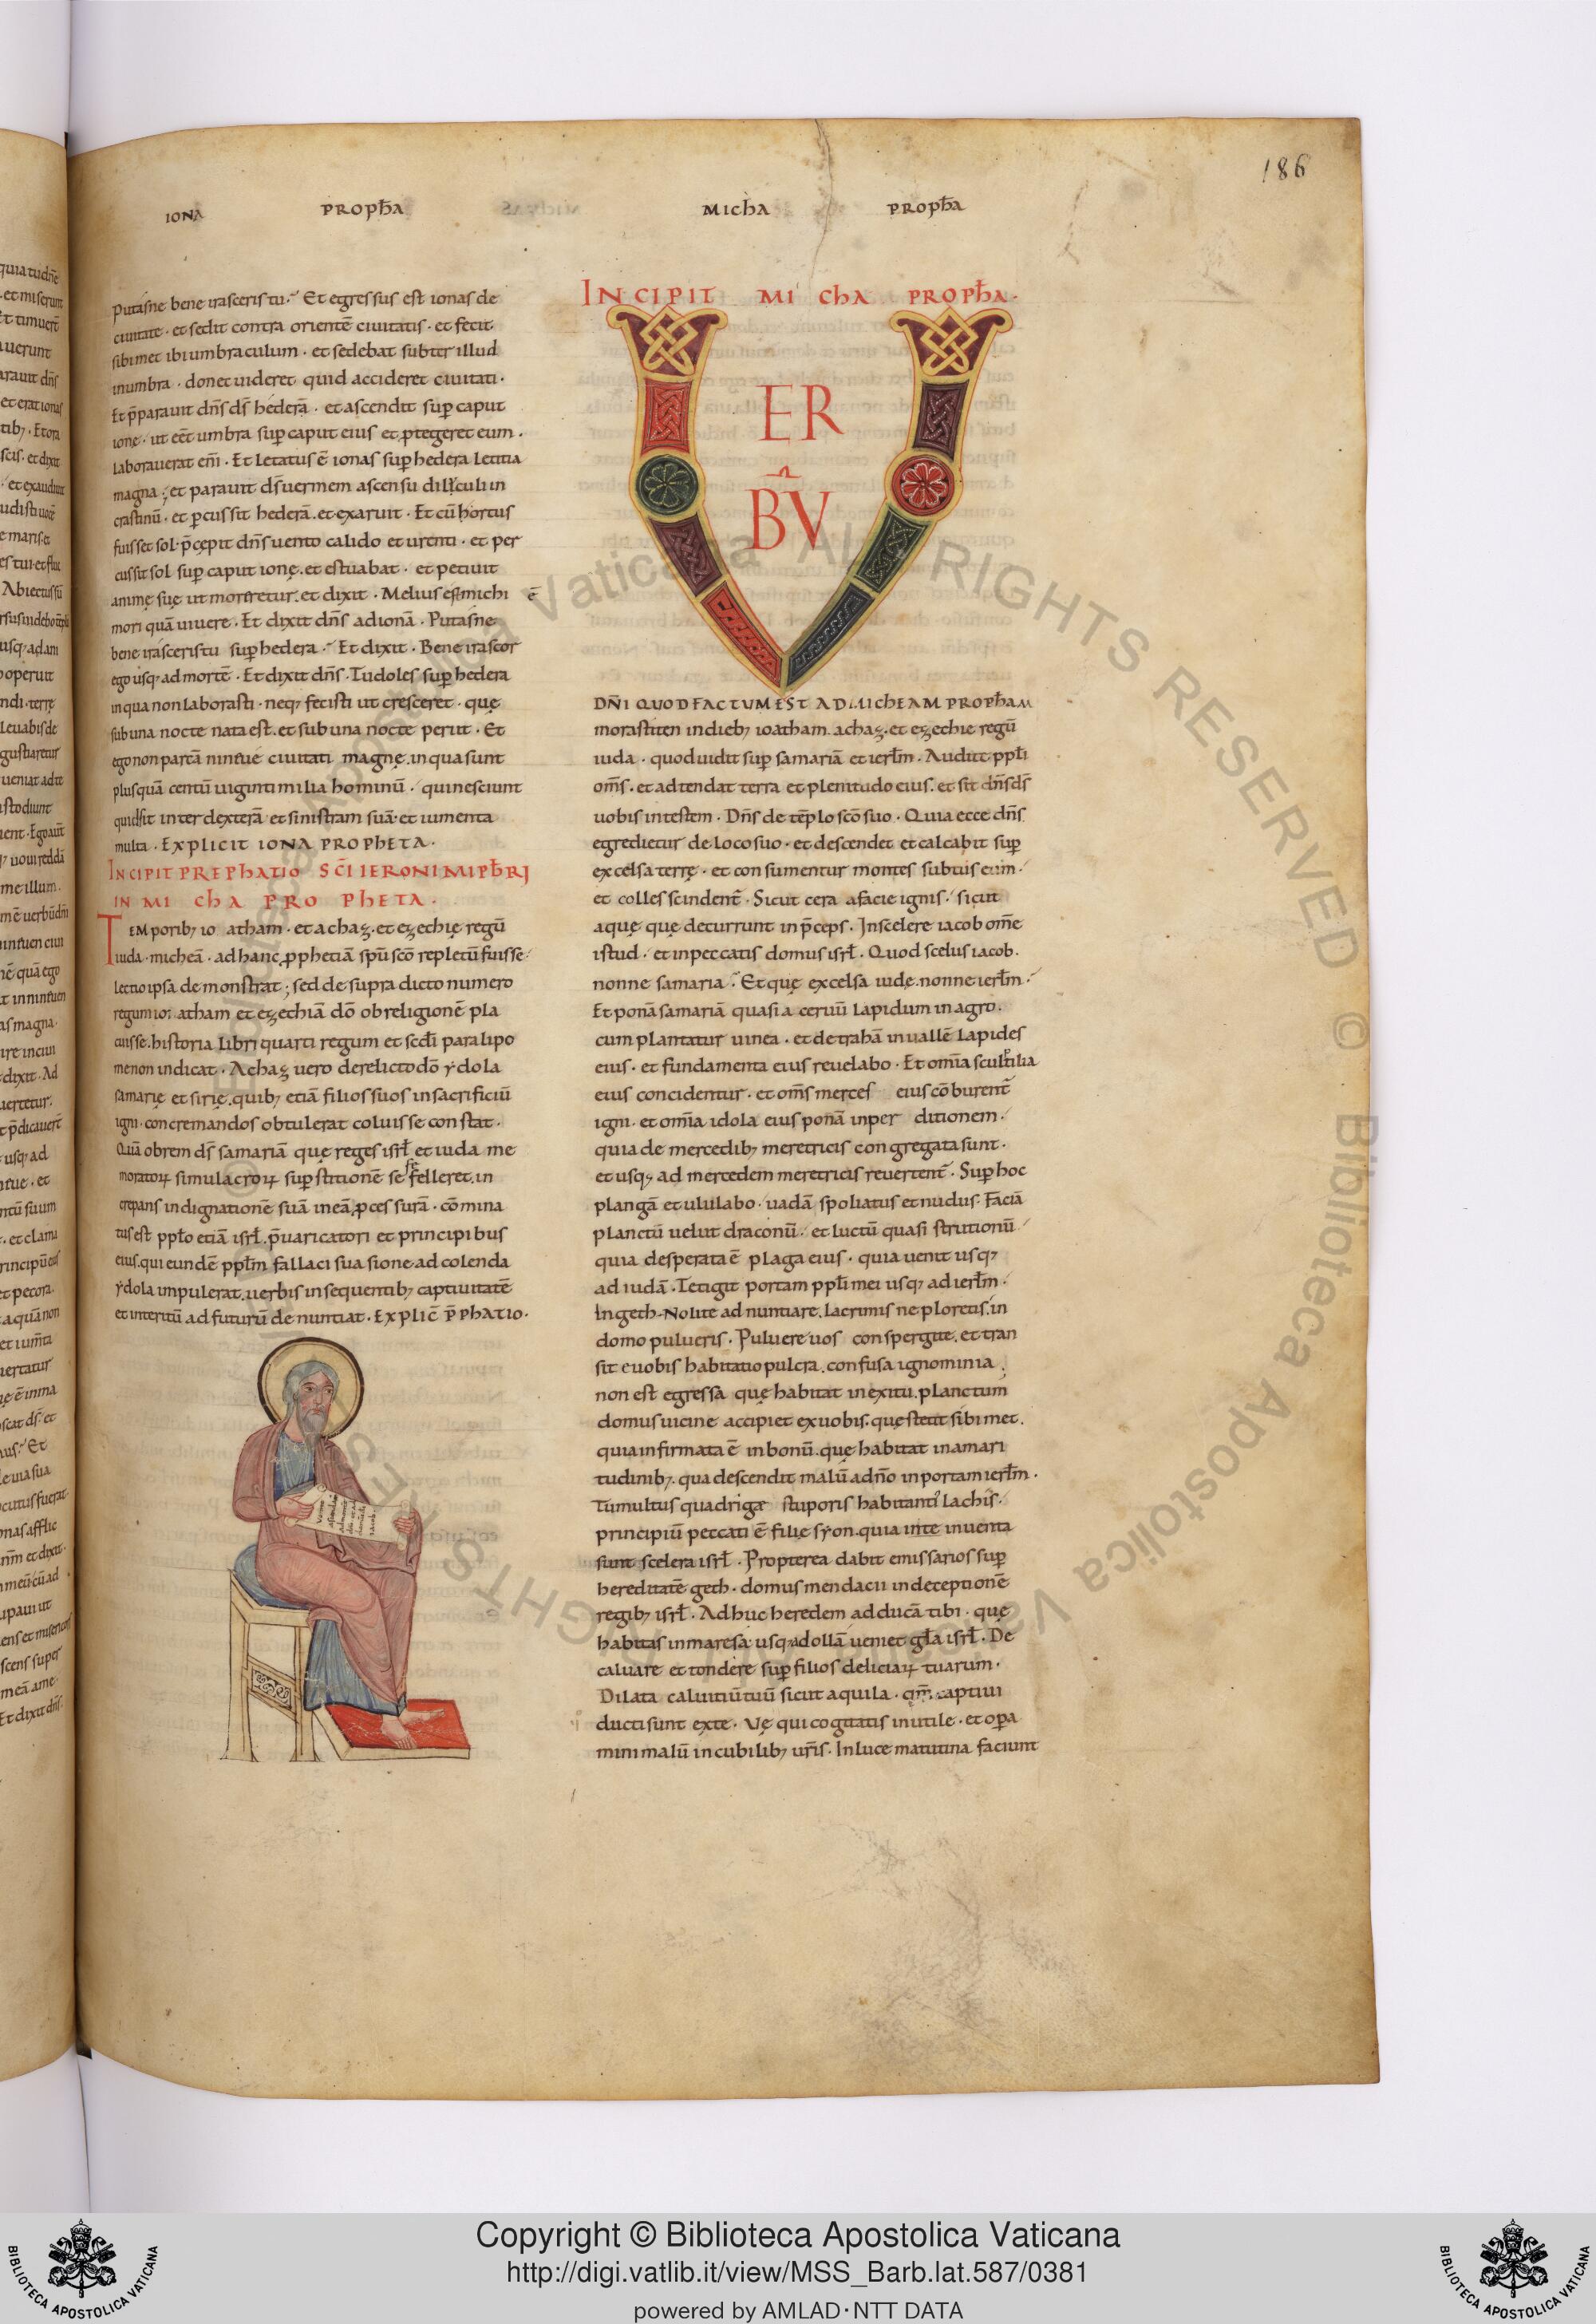 186
IONA PROPħA
MIChA PROPħA
putasne bene irasceris tu. Et egressus est ionas de
ciuitate · et sedit contra orientē ciuitatis · et fecit
sibimet ibi umbraculum · et sedebat subter illud
in umbra · donec uideret quid accideret ciuitati ·
Et p̄parauit dn̄s ds̄ hederā · et ascendit sup caput
ionę · ut eēt umbra sup caput eius et ꝓtegeret eum ·
laborauerat eni · Et letatus ē ionas sup hedera letitia
magna ; et parauit ds̄ uermem ascensu diluculi in
crastinū · et ꝑcussit hederā · et exaruit · Et cū hortus
fuisset sol · p̄cepit dn̄s uento calido et urenti · et per
cussit sol sup caput ionę · et estuabat · et petiuit
animę suę ut moreretur · et dixit · Melius est michi ē
mori quā uiuere · Et dixit dn̄s ad ionā · Putasne
bene irasceris tu sup hedera · Et dixit · Bene irascor
ego usq; ad mortē · Et dixit dn̄s · Tu doles sup hedera
in qua non laborasti · neq; fecisti ut cresceret · quę
sub una nocte nata est · et sub una nocte periit · Et
ego non parcā niniue ciuitati magnę · in qua sunt
plus quā centū uiginti milia hominū · qui nesciunt
quid sit inter dexterā et sinistram suā · et iumenta
multa · EXPLICIT IONA PROPHETA ·
INCIPIT PREPHATIO SC̄I IERONIMI PƀRI
IN MI Cha PRO PhETA ·
TEMporib; io atham · et achaz · et ezechię regū
iuda · micheā · ad hanc ꝓphetiā spū scō repletū fuisse ·
lectio ipsa demonstrat ; sed de supra dicto numero
regum ioatham et ezechiā dō ob religionē pla
cuisse · historia libri quarti regum et scdi paralipo
menon indicat · Achaz uero derelicto dō ydola
samarię et sirię · quib; etiā filios suos in sacrificiū
igni · concremandos obtulerat coluisse constat ·
Quā obrem ds̄ samariā quę reges isrł et iuda me
moratoꝝ simulacroꝝ sup̄stitionē se fefelleret · in
crepans indignationē suā in eā ꝓcessurā · cōmina
tus est ppło etiā isrł · p̄uaricatori et principibus
eius · qui eundē ppłm fallaci suasione ad colenda
ydola impulerat · uerbis in sequentib; captiuitatē
et interitū ad futurū denuntiat · EXPLIC̄ P̄PHATIO ·
INCIPIT MI Cha PROPħA ·
VER
BV̄
DN̄I QUOD FACTUM EST AD MICHEAM PROPħAM
morastiten in dieb; ioatham · achaz · et ezechie regū
iuda · quod uidit sup samariā et ierłm · Audite ppłi
om̄s · et adtendat terra et plenitudo eius · et sit dn̄s ds̄
uobis in testem · Dn̄s de tēplo scō suo · Quia ecce dn̄s
egredietur de loco suo · et descendet et calcabit sup
excelsa terrę · et consumentur montes subtus eum ·
et colles scindent̄ · Sicut cera a facie ignis · sicut
aquę quę decurrunt in p̄ceps · In scelere iacob om̄e
istud · et in peccatis domus isrł · Quod scelus iacob ·
nonne samaria · Et quę excelsa iudę · nonne ierłm ·
Et ponā samariā quasi aceruū lapidum in agro ·
cum plantatur uinea · et detrahā in uallē lapides
eius · et fundamenta eius reuelabo · Et om̄ia sculptilia
eius concidentur · et om̄s merces eius cōburent̄
igni · et om̄ia idola eius ponā in per ditionem ·
quia de mercedib; meretricis congregata sunt ·
et usq; ad mercedem meretricis reuertent̄ · Sup hoc
plangā et ululabo · uadā spoliatus et nudus · Faciā
planctū uelut draconū · et luctū quasi strutionū ·
quia desperata ē plaga eius · quia uenit usq;
ad iudā · Tetigit portam ppłi mei usq; ad ierłm ·
In geth · Nolite adnuntiare · lacrimis ne ploretis · in
domo pulueris · Puluere uos conspergite · et tran
sit e uobis habitatio pulcra · confusa ignominia ·
non est egressa quę habitat in exitu · planctum
domus uicine accipiet ex uobis · quę stetit sibimet ·
quia infirmata ē in bonū · quę habitat in amari
tudinib; · qua descendit malū a dn̄o in portam ierłm ·
Tumultus quadrigę stuporis habitanti lachis ·
principiū peccati ē filię syon · quia in te inuenta
sunt scelera isrł · Propterea dabit emissarios sup
hereditatē geth · domus mendacii in deceptionē
regib; isrł · Adhuc heredem adducā tibi · quę
habitas in maresa · usq; adollā ueniet gła isrł · De
caluare et tondere sup filios deliciaꝝ tuarum ·
Dilata caluitiū tuū sicut aquila · qm̄ captiui
ducti sunt ex te · Vę qui cogitatis inutile · et opa
mini malū in cubilib; uris · In luce matutina faciunt
Copyright © Biblioteca Apostolica Vaticana
http://digi.vatlib.it/view/MSS_Barb.lat.587/0381
powered by AMLAD · NTT DATA
BIBLIOTECA APOSTOLICA VATICANA
BIBLIOTECA APOSTOLICA VATICANA